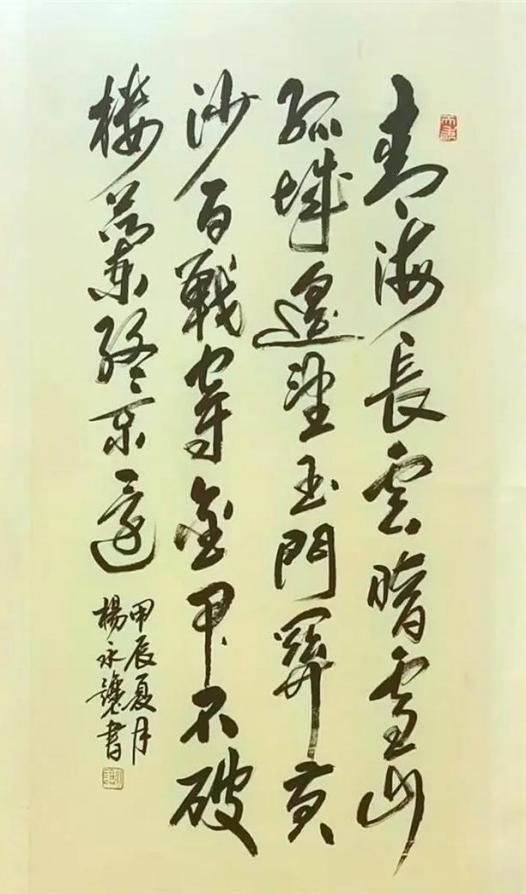 青海長雲暗雪山
孤城遙望玉門關黃
沙百戰穿金甲不破
樓蘭終不還
甲辰夏月
楊永書